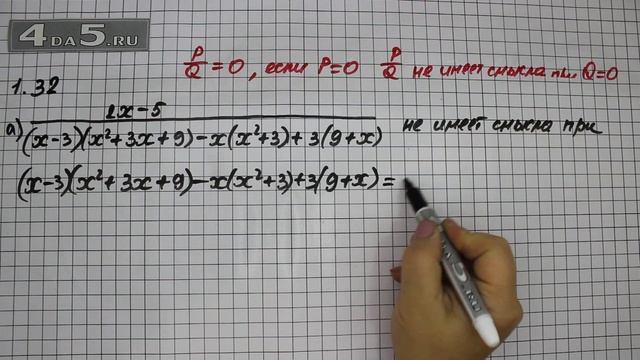 4DA5.RU
P/Q = 0, если P=0 P/Q не имеет смысла Q=0
1.32
а) (2x-5)/((x-3)(x²+3x+9)-x(x²+3)+3(9+x)) не имеет смысла при
(x-3)(x²+3x+9)-x(x²+3)+3(9+x)=